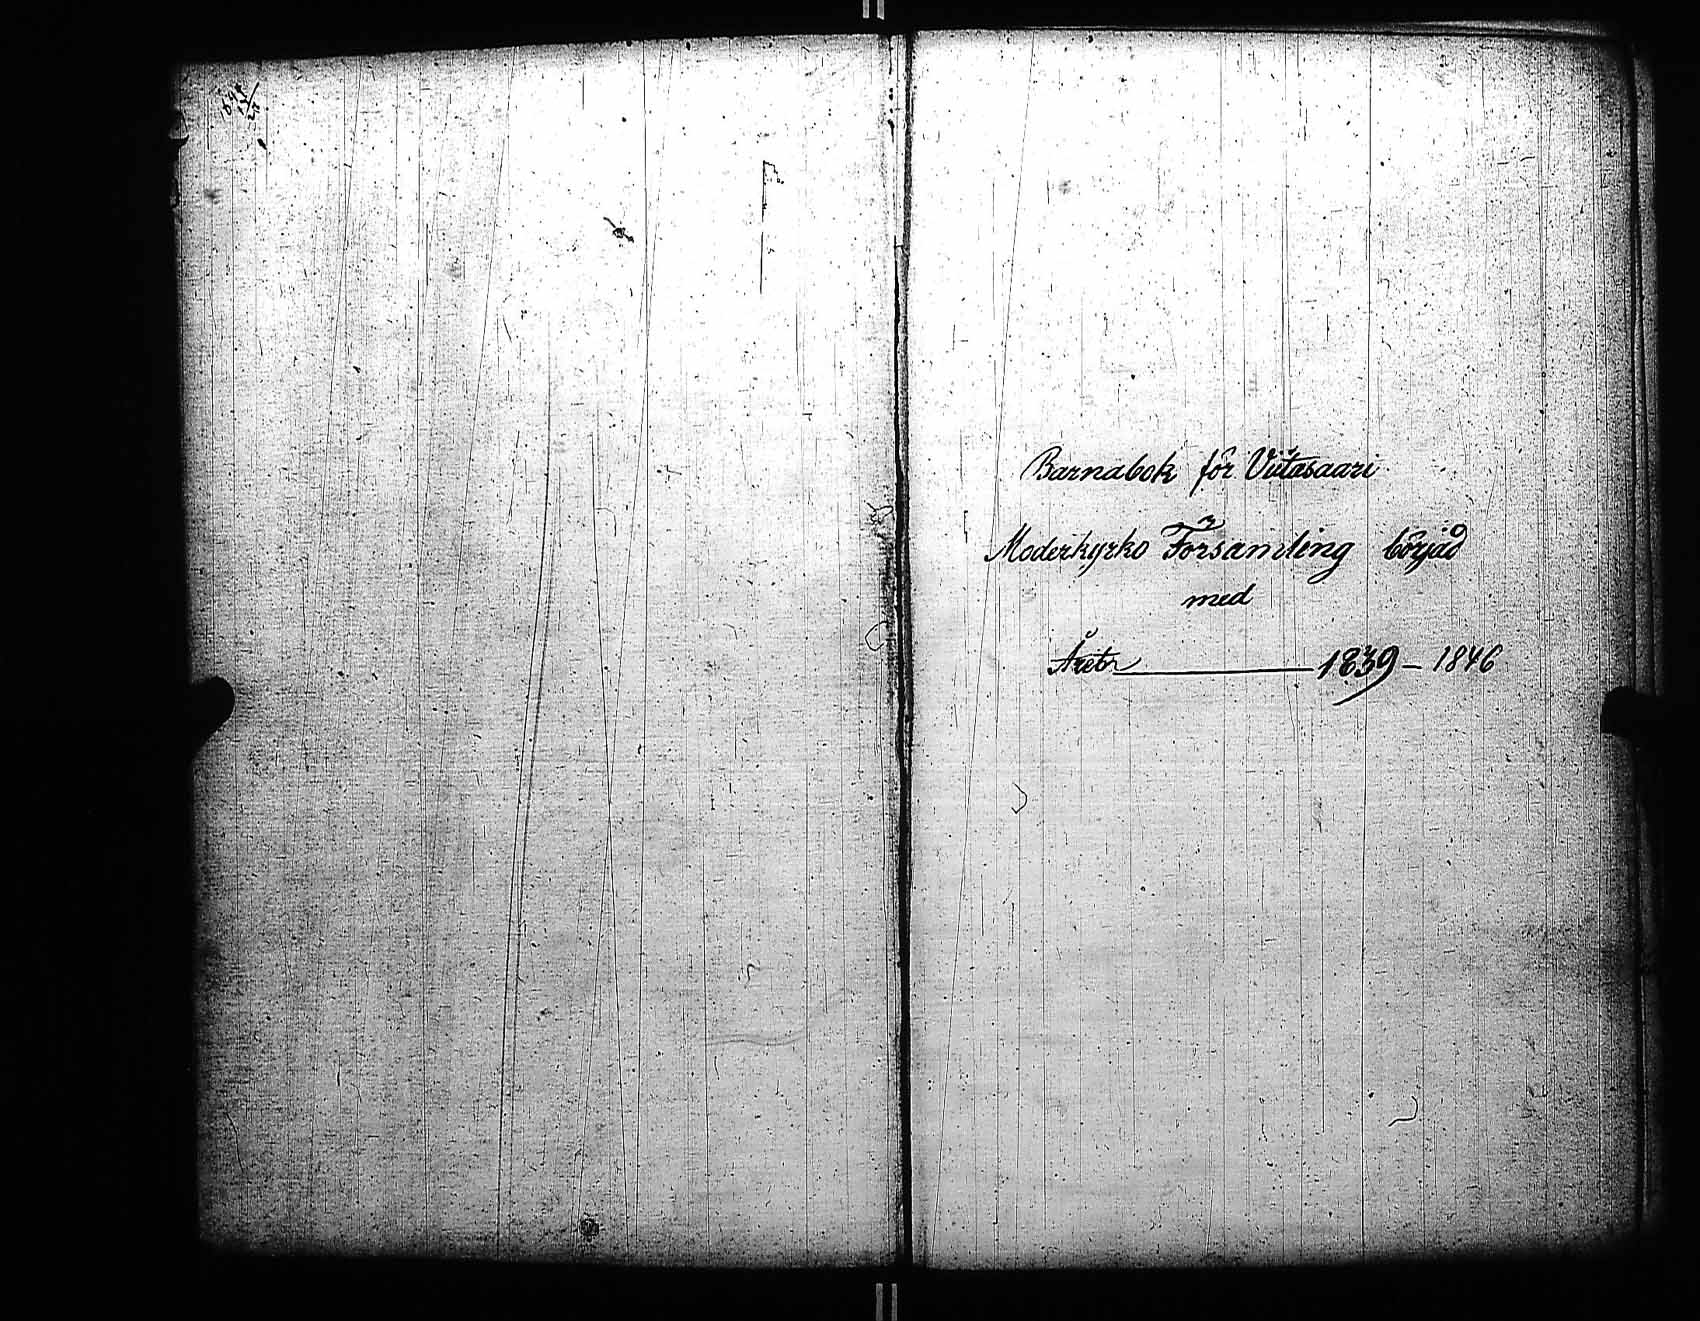 Barnabok för Viitasaari
Moderkyrko Församling börjad
med
Året 1839 – 1846